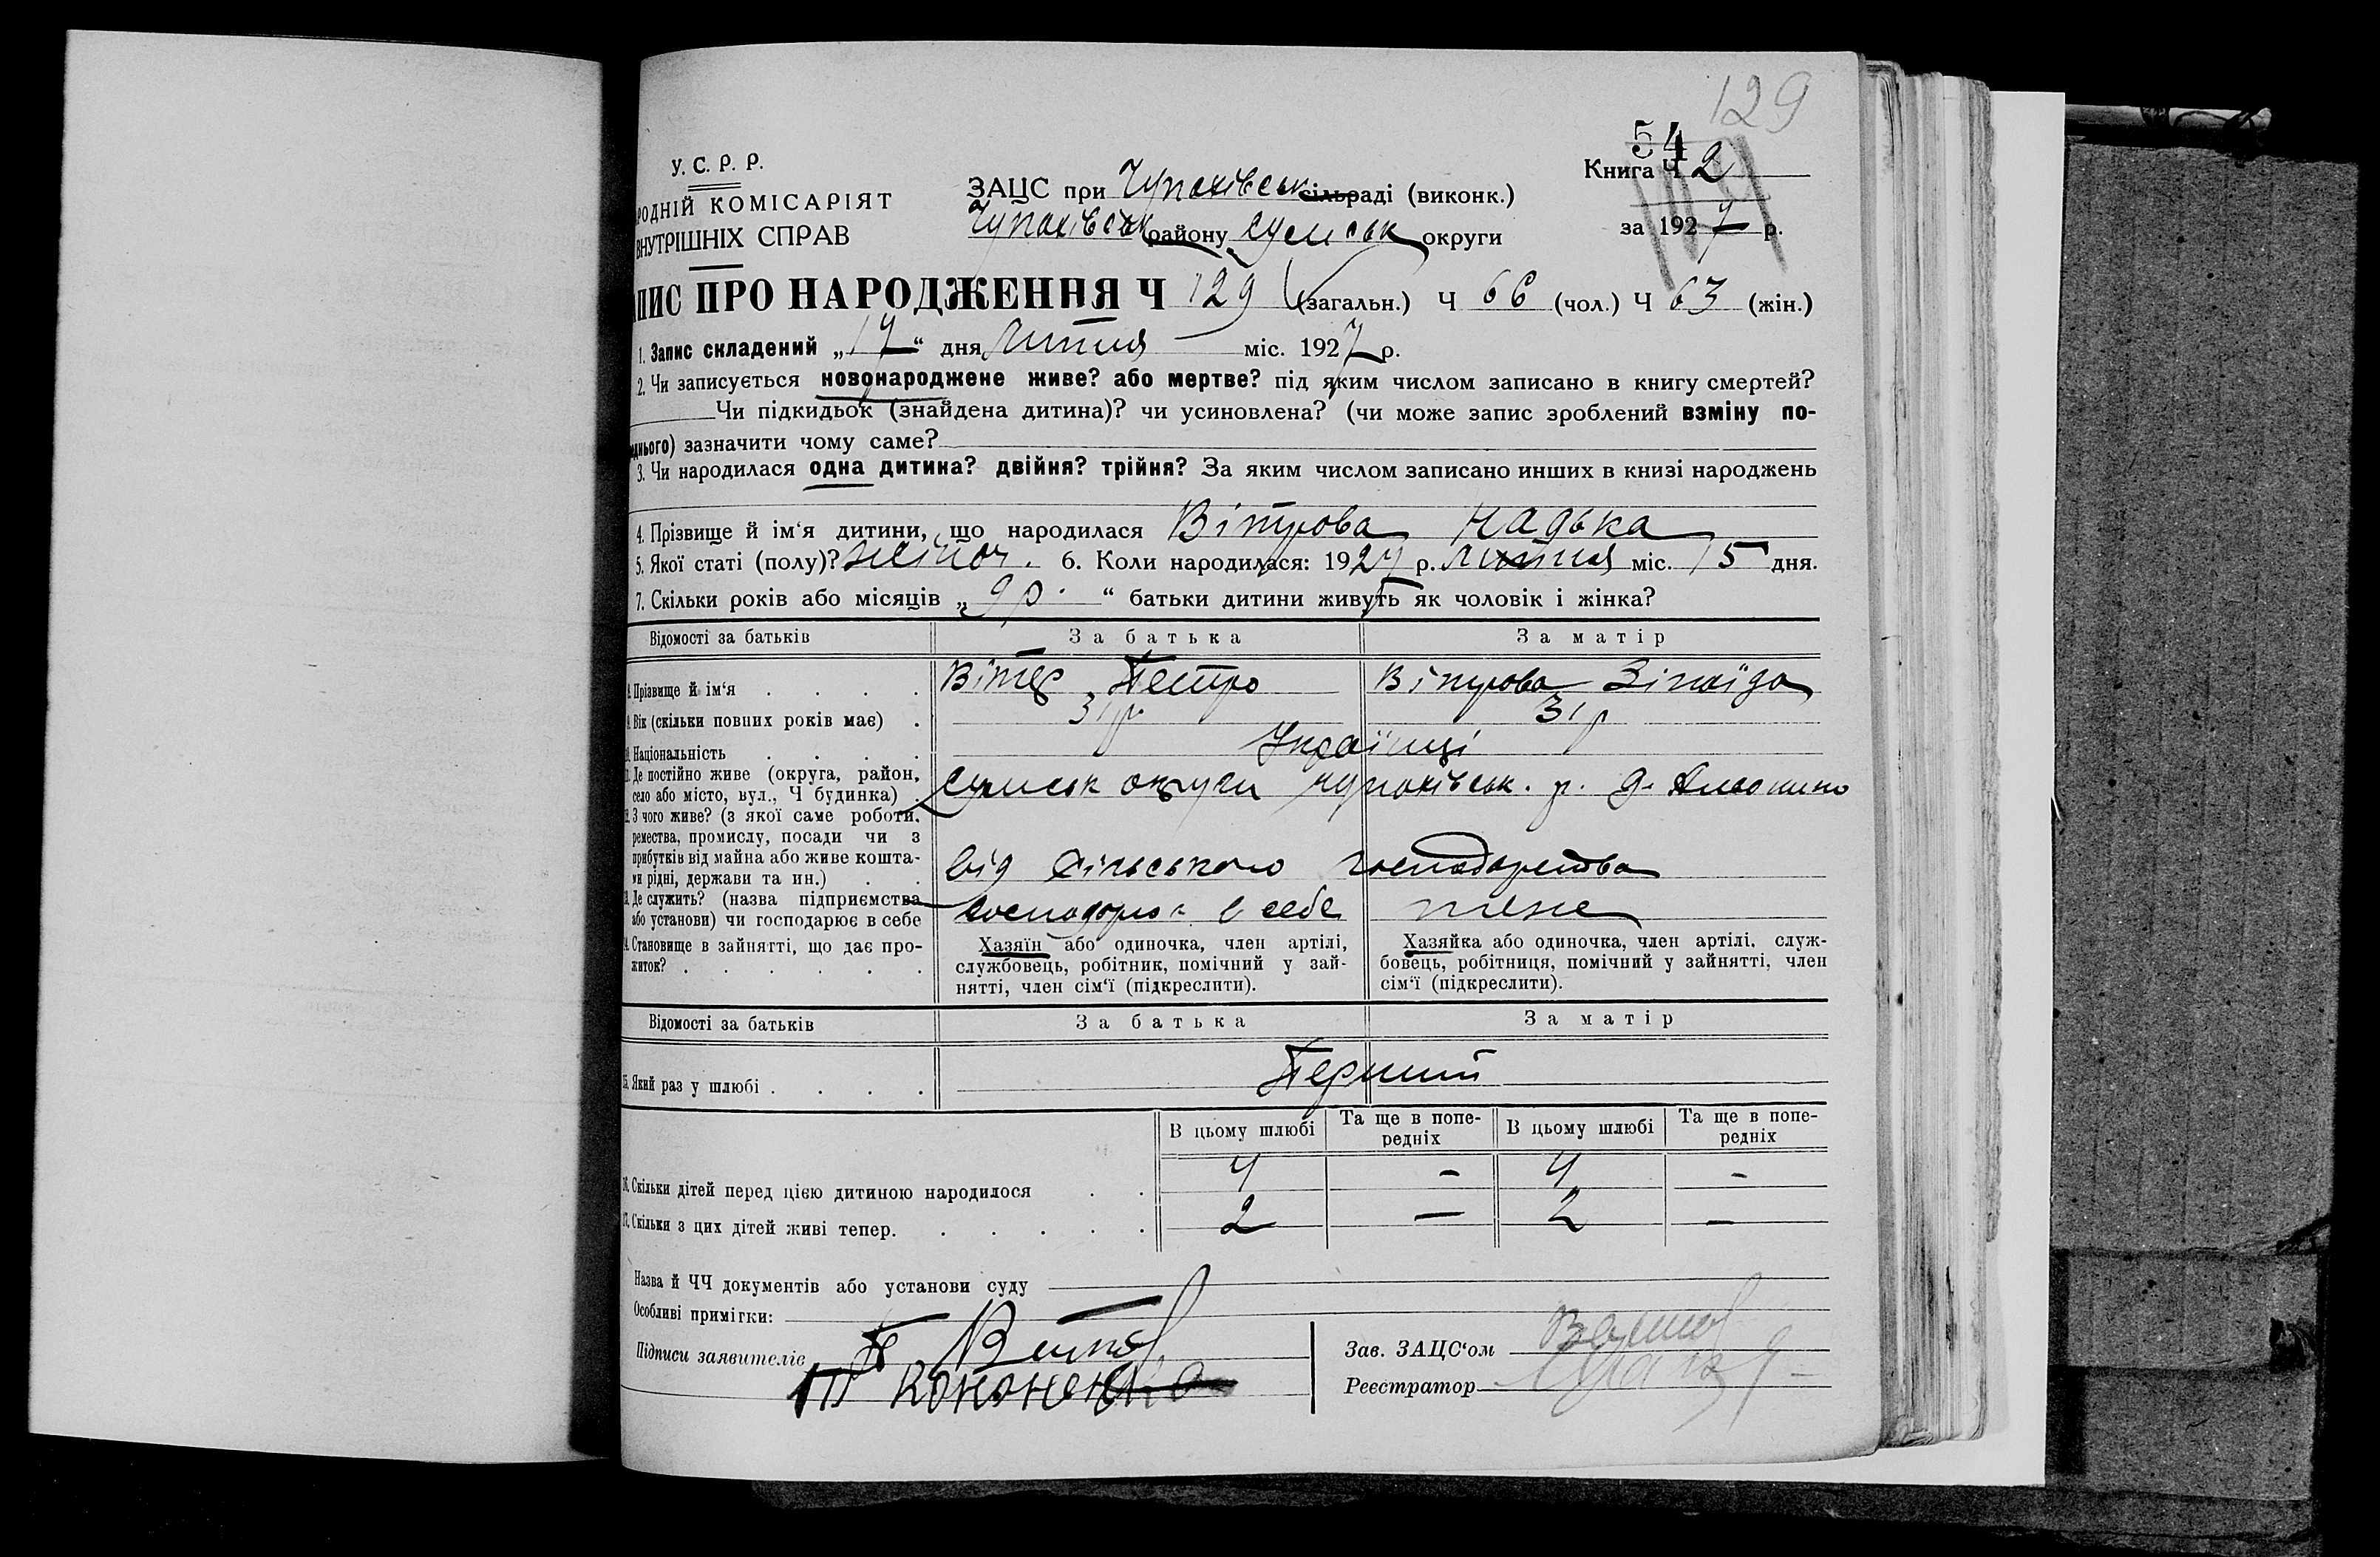 129
54
У. С. Р. Р.
Книга Ч 2
РОДНІЙ КОМІСАРІЯТ
ВНУТРІШНІХ СПРАВ
ЗАЦС при Чупахівськ сільраді (виконк.)
Чупахівськ району Сумськ округи
за 1927 р.
ПИС ПРО НАРОДЖЕННЯ Ч 129 (загальн.) Ч 66 (чол.) Ч 63 (жін.)
1. Запис складений „17“ дня Липня міс. 1927 р.
2. Чи записується новонароджене живе? або мертве? під яким числом записано в книгу смертей?
Чи підкидьок (знайдена дитина)? чи усиновлена? (чи може запис зроблений взміну по-
днього) зазначити чому саме?
3. Чи народилася одна дитина? двійня? трійня? За яким числом записано инших в книзі народжень
4. Прізвище й ім‘я дитини, що народилася Вітрова Надька
5. Якої статі (полу)? жіноч. 6. Коли народилася: 1927 р. липня міс. 15 дня.
7. Скільки років або місяців „9 р.“ батьки дитини живуть як чоловік і жінка?
Відомості за батьків За батька За матір
8. Прізвище й ім‘я Вітер Петро Вітрова Зінаїда
9. Вік (скільки повних років має) 31 р. 31 р
10. Національність Українці
11. Де постійно живе (округа, район,
село або місто, вул., Ч будинка) Сумськ округи Чупахівськ. р. д.
12. З чого живе? (з якої саме роботи,
ремества, промислу, посади чи з
прибутків від майна або живе кошта-
ми рідні, держави та ин.) від сільського господарства
13. Де служить? (назва підприємства
або установи) чи господарює в себе господарює в себе теж
14. Становище в зайнятті, що дає про-
житок?
Хазяїн або одиночка, член артілі,
службовець, робітник, помічний у зай-
нятті, член сім‘ї (підкреслити).
Хазяйка або одиночка, член артілі, служ-
бовець, робітниця, помічний у зайнятті, член
сім‘ї (підкреслити).
Відомості за батьків За батька За матір
15. Який раз у шлюбі Перший
В цьому шлюбі Та ще в попе-
редніх В цьому шлюбі Та ще в попе-
редніх
16. Скільки дітей перед цією дитиною народилося 4 — 4 —
17. Скільки з цих дітей живі тепер. 2 — 2 —
Назва й ЧЧ документів або установи суду
Особливі примітки:
Підписи заявителів П Витер
Кононенко
Зав. ЗАЦС‘ом
Реєстратор